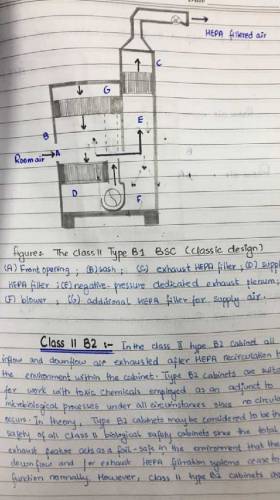 HEPA filtered air
C
G
B
E
A
Room air
D
F
figure: The class II Type B1 BSC (classic design)
(A) Front opening ; (B) sash ; (C) exhaust HEPA filter ; (D) suppl
HEPA filter ; (E) negative pressure dedicated exhaust plenum ;
(F) blower ; (G) additional HEPA filter for supply air.
Class II B2 :- In the class II type B2 cabinet all
inflow and downflow air exhausted after HEPA recirculation to
the environment within the cabinet. Type B2 cabinets are suita
for work with toxic chemicals employed as an adjunct to
microbiological processes under all circumstances since no circula
occurs. In theory, Type B2 cabinets may be considered to be the
safety of all class II biological safety cabinets since the total
exhaust feature acts as a fail-safe in the environment that the
downflow and / or exhaust HEPA filtration systems cease to
function normally. However, class II type B2 cabinets